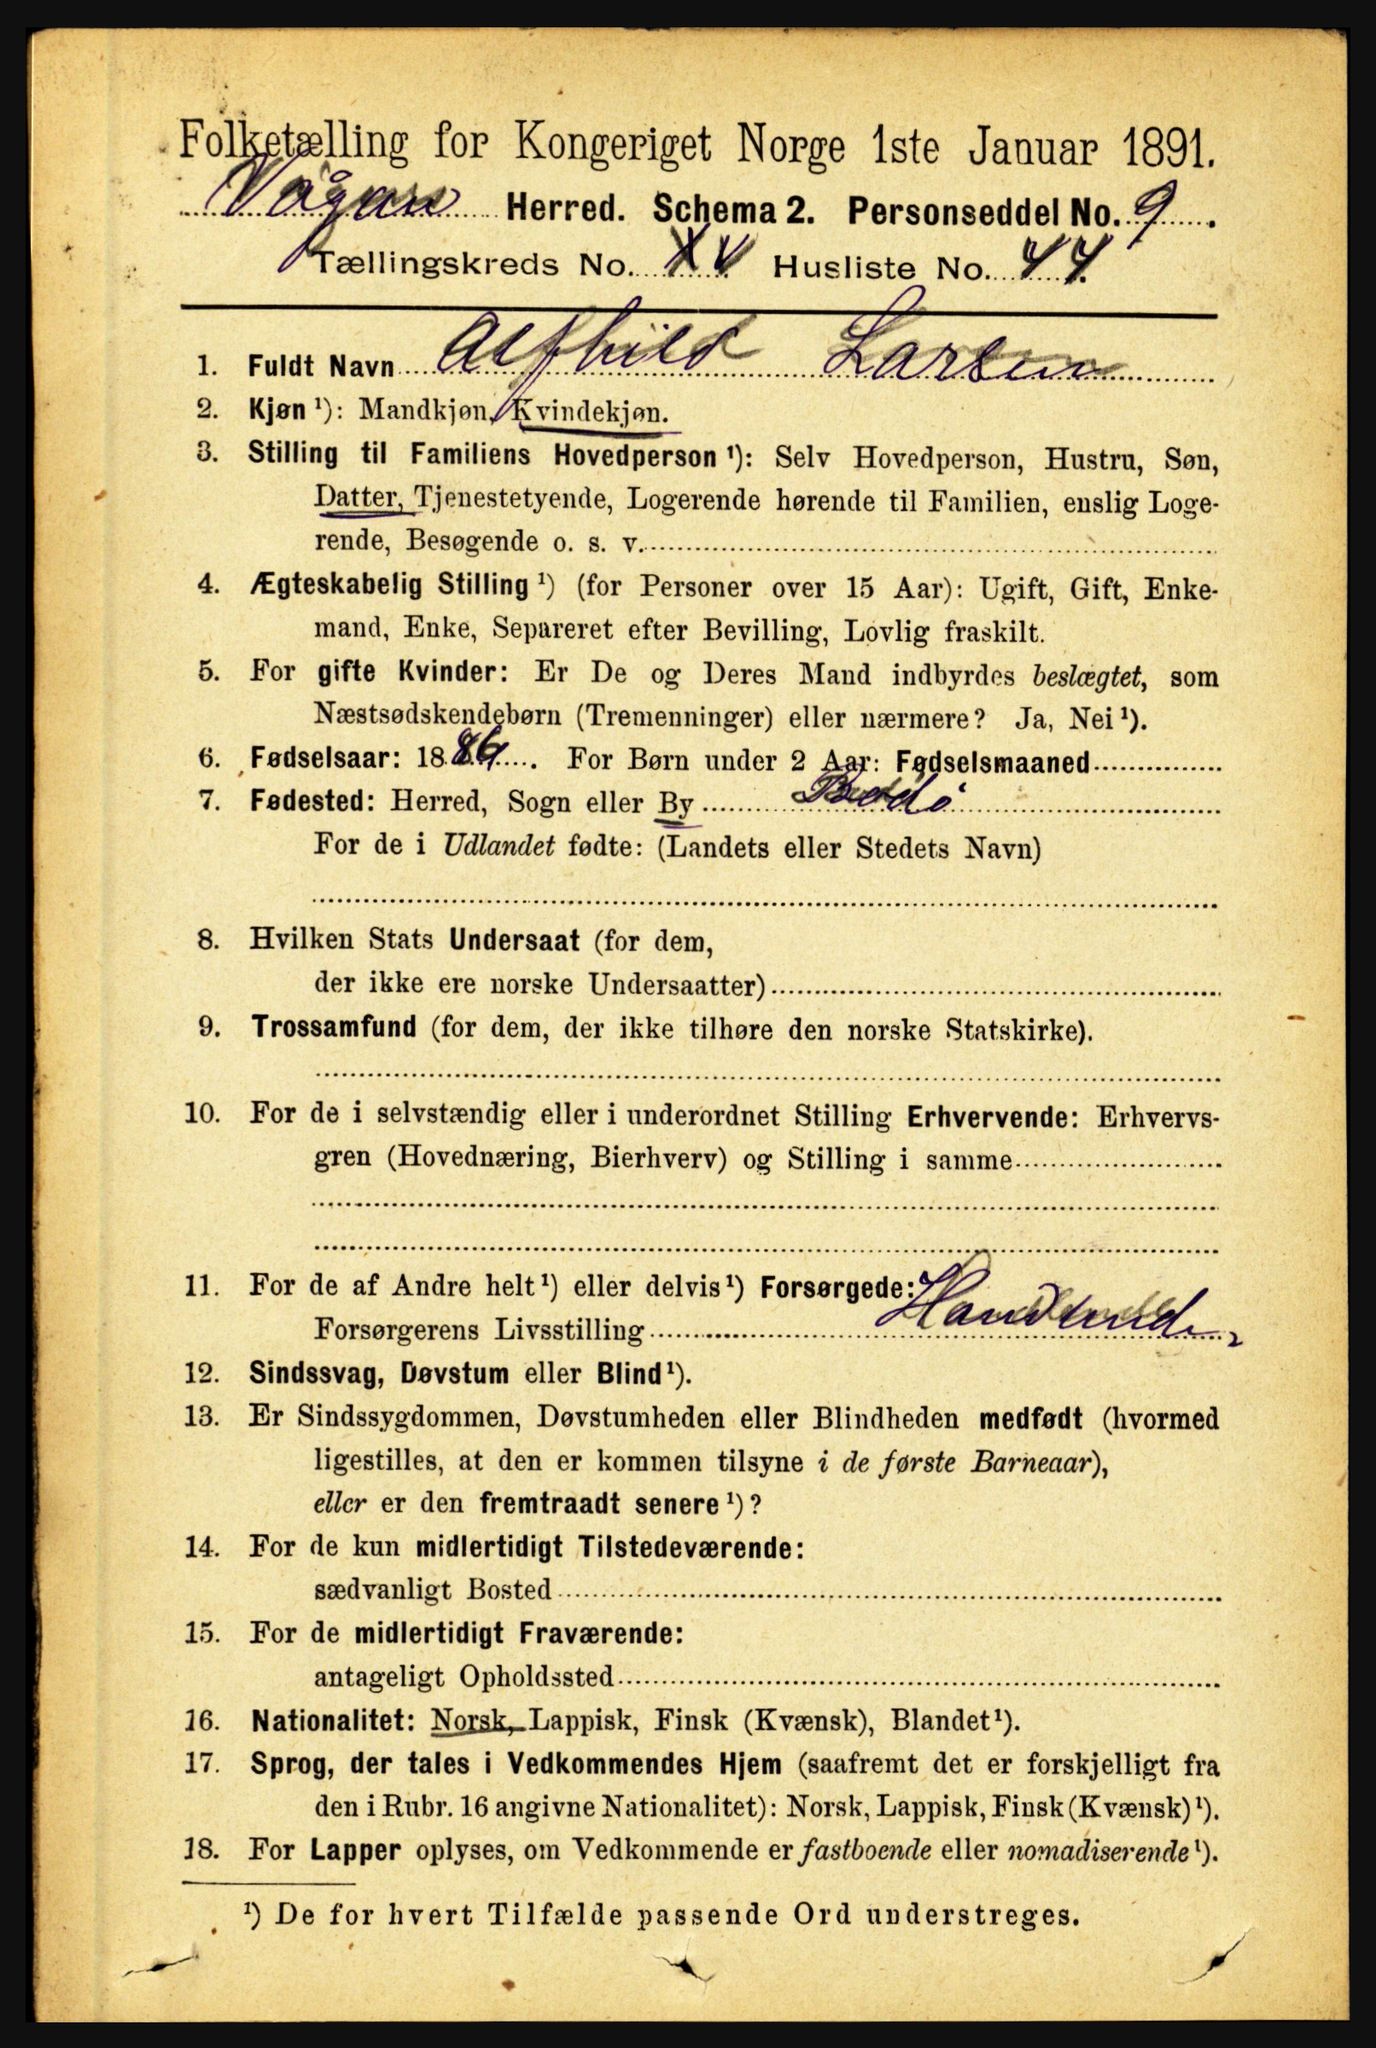 Folketælling for Kongeriget Norge 1ste Januar 1891.
Vågan Herred. Schema 2. Personseddel No. 9.
Tællingskreds No. XV Husliste No. 44.
1. Fuldt Navn Alfhild Larsen
2. Kjøn ¹): Mandkjøn, Kvindekjøn.
3. Stilling til Familiens Hovedperson ¹): Selv Hovedperson, Hustru, Søn,
Datter, Tjenestetyende, Logerende hørende til Familien, enslig Loge-
rende, Besøgende o. s. v.
4. Ægteskabelig Stilling ¹) (for Personer over 15 Aar): Ugift, Gift, Enke-
mand, Enke, Separeret efter Bevilling, Lovlig fraskilt.
5. For gifte Kvinder: Er De og Deres Mand indbyrdes beslægtet, som
Næstsødskendebørn (Tremenninger) eller nærmere? Ja, Nei ¹).
6. Fødselsaar: 1886. For Børn under 2 Aar: Fødselsmaaned
7. Fødested: Herred, Sogn eller By Bodö
For de i Udlandet fødte: (Landets eller Stedets Navn)
8. Hvilken Stats Undersaat (for dem,
der ikke ere norske Undersaatter)
9. Trossamfund (for dem, der ikke tilhøre den norske Statskirke).
10. For de i selvstændig eller i underordnet Stilling Erhvervende: Erhvervs-
gren (Hovednæring, Bierhverv) og Stilling i samme
11. For de af Andre helt ¹) eller delvis ¹) Forsørgede:
Forsørgerens Livsstilling
12. Sindssvag, Døvstum eller Blind ¹).
13. Er Sindssygdommen, Døvstumheden eller Blindheden medfødt (hvormed
ligestilles, at den er kommen tilsyne i de første Barneaar),
eller er den fremtraadt senere ¹)?
14. For de kun midlertidigt Tilstedeværende:
sædvanligt Bosted
15. For de midlertidigt Fraværende:
antageligt Opholdssted
16. Nationalitet: Norsk, Lappisk, Finsk (Kvænsk), Blandet ¹).
17. Sprog, der tales i Vedkommendes Hjem (saafremt det er forskjelligt fra
den i Rubr. 16 angivne Nationalitet): Norsk, Lappisk, Finsk (Kvænsk) ¹).
18. For Lapper oplyses, om Vedkommende er fastboende eller nomadiserende ¹).
¹) De for hvert Tilfælde passende Ord understreges.